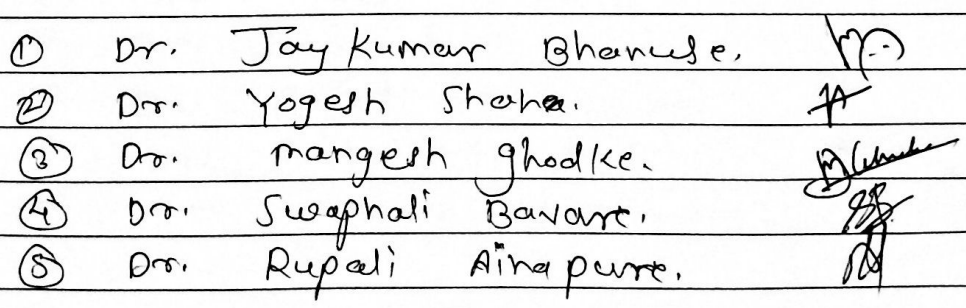 ① Dr. Jay Kumar Bhanuse.
② Dr. Yogesh Shaha.
③ Dr. mangesh ghodke.
④ Dr. Swaphali Bavare.
⑤ Dr. Rupali Ainapure.